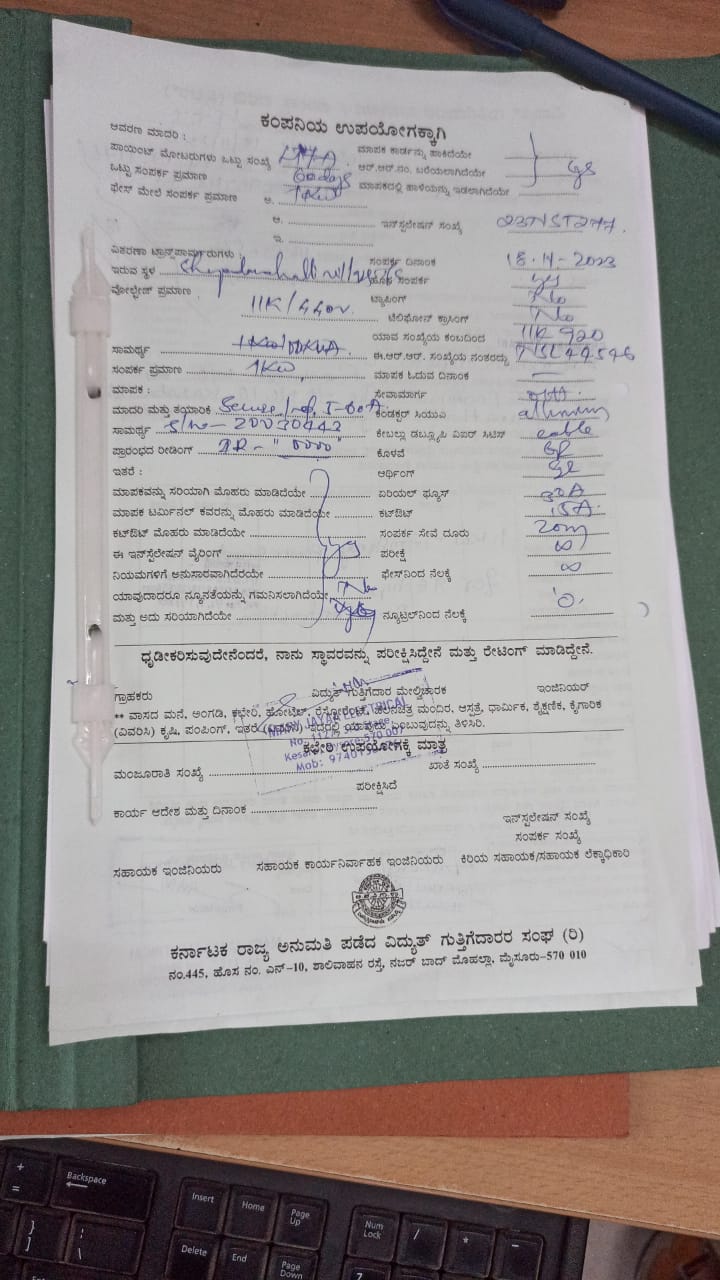 ಕಂಪನಿಯ ಉಪಯೋಗಕ್ಕಾಗಿ
ಆವರಣ ಮಾದರಿ :
ಪಾಯಿಂಟ್ ಮೋಟರುಗಳು ಒಟ್ಟು ಸಂಖ್ಯೆ ಮಾಪಕ ಕಾರ್ಡನ್ನು ಹಾಕಿದೆಯೇ
ಒಟ್ಟು ಸಂಪರ್ಕ ಪ್ರಮಾಣ ಆರ್.ಆರ್.ನಂ. ಬರೆಯಲಾಗಿದೆಯೇ
ಫೇಸ್ ಮೇಲೆ ಸಂಪರ್ಕ ಪ್ರಮಾಣ ಅ. 1KW ಮಾಪಕದಲ್ಲಿ ಹಾಳೆಯನ್ನು ಇಡಲಾಗಿದೆಯೇ
ಆ. ಇನ್‌ಸ್ಟಲೇಷನ್ ಸಂಖ್ಯೆ 23NST277.
ಇ.
ವಿತರಣಾ ಟ್ರಾನ್ಸ್‌ಪಾರ್ಮರುಗಳು : ಸಂಪರ್ಕ ದಿನಾಂಕ 18-4-2023
ಇರುವ ಸ್ಥಳ ಸಂಪರ್ಕ yes
ವೋಲ್ಟೇಜ್ ಪ್ರಮಾಣ 11K/440V. ಟ್ಯಾಪಿಂಗ್ No
ಟೆಲಿಫೋನ್ ಕ್ರಾಸಿಂಗ್ No
ಯಾವ ಸಂಖ್ಯೆಯ ಕಂಬದಿಂದ
ಸಾಮರ್ಥ್ಯ ಈ.ಆರ್.ಆರ್. ಸಂಖ್ಯೆಯ ನಂತರದ್ದು
ಸಂಪರ್ಕ ಪ್ರಮಾಣ 1KW ಮಾಪಕ ಓದುವ ದಿನಾಂಕ —
ಮಾಪಕ : ಸೇವಾಮಾರ್ಗ
ಮಾದರಿ ಮತ್ತು ತಯಾರಿಕೆ Secure ಕಂಡಕ್ಟರ್ ಸಿಯುಎ
ಸಾಮರ್ಥ್ಯ S/no - 20030442 ಕೇಬಲ್ಲು ಡಬ್ಲ್ಯೂಪಿ ವಿಐರ್ ಸಿಟಿಸ್ cable
ಪ್ರಾರಂಭದ ರೀಡಿಂಗ್ IR-"0000" ಕೊಳವೆ GI
ಇತರೆ : ಆರ್ಥಿಂಗ್ GI
ಮಾಪಕವನ್ನು ಸರಿಯಾಗಿ ಮೊಹರು ಮಾಡಿದೆಯೇ ಏರಿಯಲ್ ಫ್ಯೂಸ್ 30A
ಮಾಪಕ ಟರ್ಮಿನಲ್ ಕವರನ್ನು ಮೊಹರು ಮಾಡಿದೆಯೇ ಕಟ್‌ಔಟ್ 15A.
ಕಟ್‌ಔಟ್ ಮೊಹರು ಮಾಡಿದೆಯೇ ಸಂಪರ್ಕ ಸೇವೆ ದೂರು 20m
ಈ ಇನ್‌ಸ್ಟೆಲೇಷನ್ ವೈರಿಂಗ್ yes ಪರೀಕ್ಷೆ ∞
ನಿಯಮಗಳಿಗೆ ಅನುಸಾರವಾಗಿದೆರಯೇ ಫೇಸ್‌ನಿಂದ ನೆಲಕ್ಕೆ ∞
ಯಾವುದಾದರೂ ನ್ಯೂನತೆಯನ್ನು ಗಮನಿಸಲಾಗಿದೆಯೇ No
ಮತ್ತು ಅದು ಸರಿಯಾಗಿದೆಯೇ ನ್ಯೂಟ್ರಲ್‌ನಿಂದ ನೆಲಕ್ಕೆ '0.
ಧೃಡೀಕರಿಸುವುದೇನೆಂದರೆ, ನಾನು ಸ್ಥಾವರವನ್ನು ಪರೀಕ್ಷಿಸಿದ್ದೇನೆ ಮತ್ತು ರೇಟಿಂಗ್ ಮಾಡಿದ್ದೇನೆ.
ಗ್ರಾಹಕರು ವಿದ್ಯುತ್ ಗುತ್ತಿಗೆದಾರ ಮೇಲ್ವಿಚಾರಕ ಇಂಜಿನಿಯರ್
** ವಾಸದ ಮನೆ, ಅಂಗಡಿ, ಕಛೇರಿ, ಹೋಟೆಲ್, ರೆಸ್ಟೋರೆಂಟ್, ಚಲನಚಿತ್ರ ಮಂದಿರ, ಆಸ್ಪತ್ರೆ, ಧಾರ್ಮಿಕ, ಶೈಕ್ಷಣಿಕ, ಕೈಗಾರಿಕೆ
(ವಿವರಿಸಿ) ಕೃಷಿ, ಪಂಪಿಂಗ್, ಇತರೆ ಇದರಲ್ಲಿ ಯಾವುದು ಎಂಬುವುದನ್ನು ತಿಳಿಸಿರಿ.
ಕಛೇರಿ ಉಪಯೋಗಕ್ಕೆ ಮಾತ್ರ
ಮಂಜೂರಾತಿ ಸಂಖ್ಯೆ ಖಾತೆ ಸಂಖ್ಯೆ
ಪರೀಕ್ಷಿಸಿದೆ
ಕಾರ್ಯ ಆದೇಶ ಮತ್ತು ದಿನಾಂಕ
ಇನ್‌ಸ್ಟಲೇಷನ್ ಸಂಖ್ಯೆ
ಸಂಪರ್ಕ ಸಂಖ್ಯೆ
ಸಹಾಯಕ ಇಂಜಿನಿಯರು ಸಹಾಯಕ ಕಾರ್ಯನಿರ್ವಾಹಕ ಇಂಜಿನಿಯರು ಕಿರಿಯ ಸಹಾಯಕ/ಸಹಾಯಕ ಲೆಕ್ಕಾಧಿಕಾರಿ
ಕರ್ನಾಟಕ ರಾಜ್ಯ ಅನುಮತಿ ಪಡೆದ ವಿದ್ಯುತ್ ಗುತ್ತಿಗೆದಾರರ ಸಂಘ (ರಿ)
ನಂ.445, ಹೊಸ ನಂ. ಎನ್-10, ಶಾಲಿವಾಹನ ರಸ್ತೆ, ನಜರ್ ಬಾದ್ ಮೊಹಲ್ಲಾ, ಮೈಸೂರು-570 010
Backspace
Insert Home Page Up Num Lock / * -
Delete End Page Down